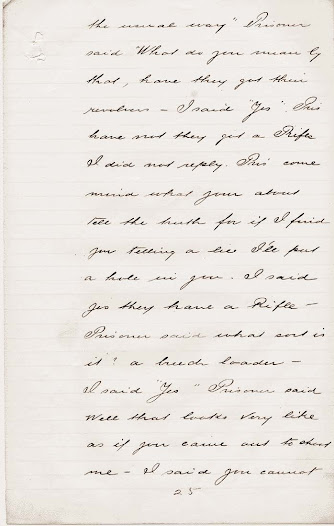 the usual way" Prisoner
said "What do you mean by
that, have they got their
revolvers – I said "Yes". Pris
have not they got a Rifle
I did not reply. Pris come
mind what your about
tell the truth for if I find
you telling a lie I'll put
a hole in you. I said
yes they have a Rifle –
Prisoner said what sort is
it? a breech loader –
I said "Yes" Prisoner said
Well that looks very like
as if you came out to shoot
me – I said you cannot
25